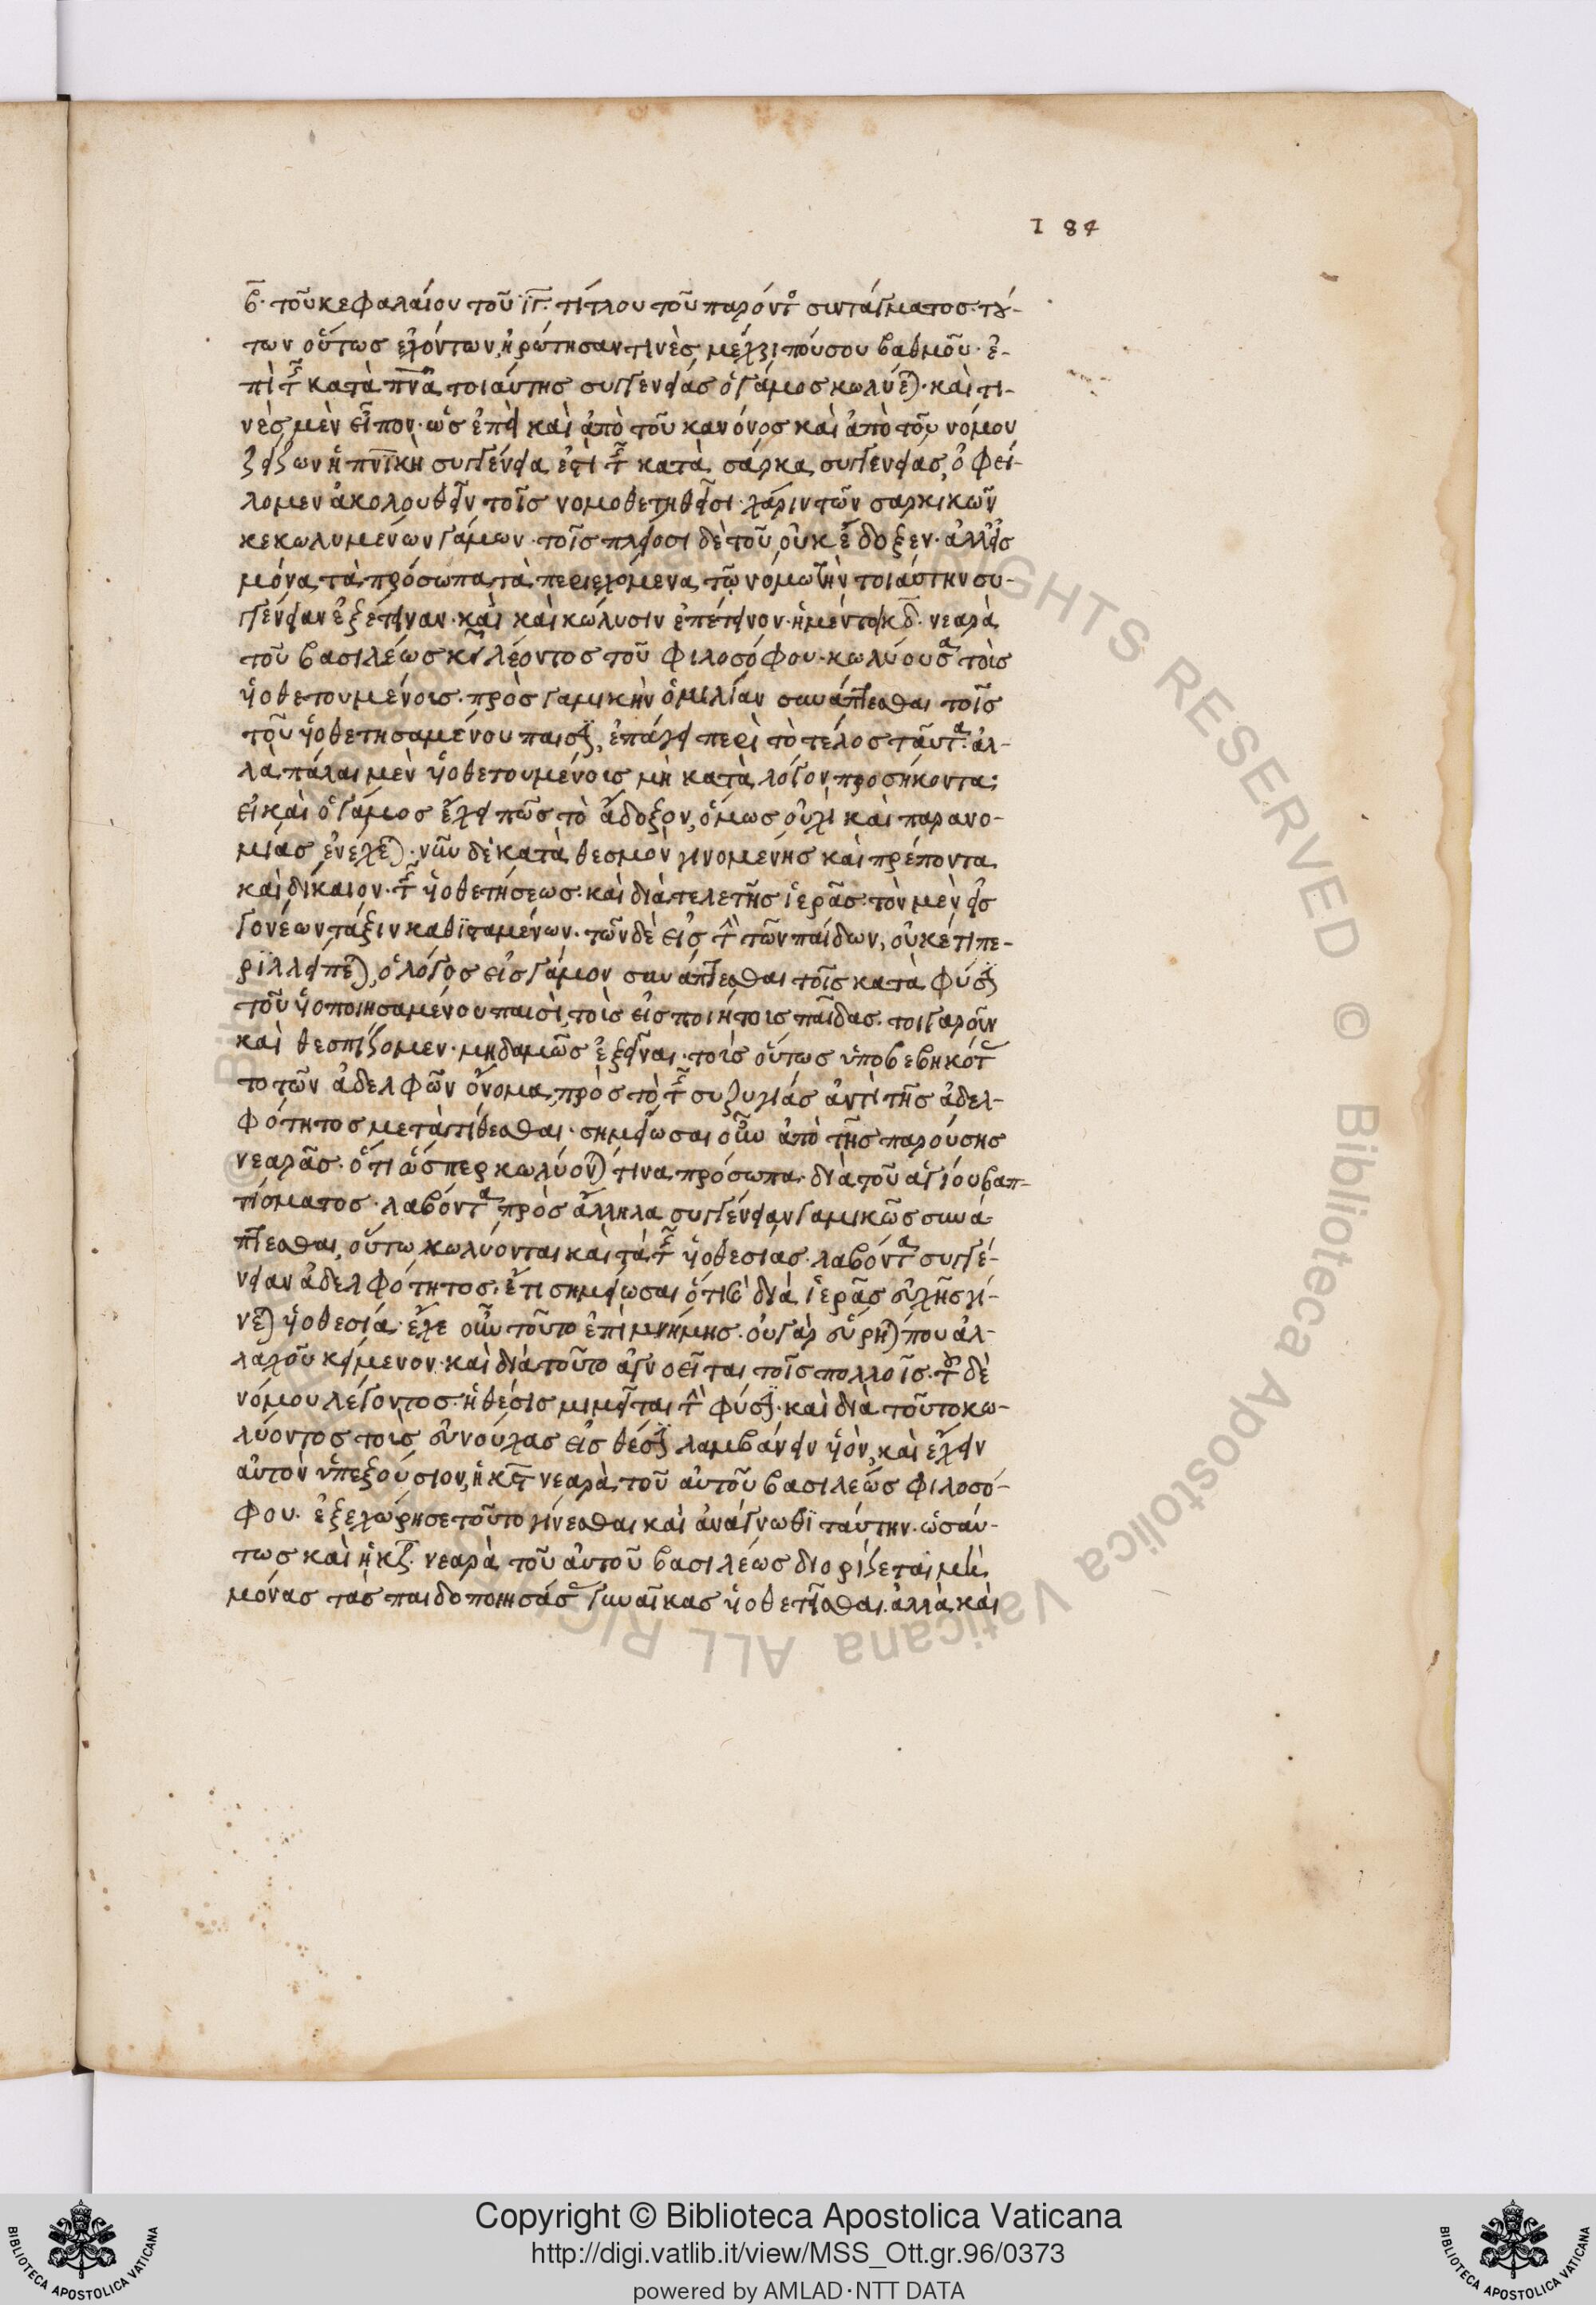 184
β̅· τοῦ κεφαλαίου τοῦ ιγ̅· τίτλου τοῦ παρόντ(ος) συντάγματος· τού-
των οὕτως ἐχόντων, ἠρώτησαν τινὲς, μέχρι πόσου βαθμοῦ· ἐ-
πὶ τῆς κατὰ πν̅α τοιαύτης συγγενείας ὁ γάμος κωλύεται· καὶ τι-
νὲς μὲν εἶπον· ὡς ἐπεὶ καὶ ἀπὸ τοῦ κανόνος καὶ ἀπὸ τοῦ νόμου
μείζων ἡ πν̅ικὴ συγγένεια ἐστὶ τῆς κατὰ σάρκα συγγενείας, ὀφεί-
λομεν ἀκολουθεῖν τοῖς νομοθετηθεῖσι· χάριν τῶν σαρκικῶν
κεκωλυμένων γάμων· τοῖς πλείοσι δὲ τοῦ οὐκ ἔδοξεν· ἀλλ' εἰς
μόνα τὰ πρόσωπα τὰ περιεχόμενα τῷ νόμω τὴν τοιαύτην συ-
γγένειαν ἐξέτειναν· καὶ καὶ κώλυσιν ἐπέτεινον· ἡ μέντοι κδ̅· νεαρὰ
τοῦ βασιλέως κυ̅ λέοντος τοῦ φιλοσόφου· κωλύουσα τοῖς
ὑοθετουμένοις· πρὸς γαμικὴν ὁμιλίαν συνάπτεσθαι τοῖς
τοῦ ὑοθετησαμένου παισὶν, ἐπάγει περὶ τὸ τέλος ταῦτα· ἀλ-
λὰ πάλαι μὲν ὑοθετουμένοις μὴ κατὰ λόγον προσήκοντα·
εἰ καὶ ὁ γάμος ἔχει πῶς τὸ ἄδοξον, ὅμως οὐχὶ καὶ παρανο-
μίας ἐνέχεται· νῦν δὲ κατὰ θεσμὸν γινομένης καὶ πρέποντα
καὶ δίκαιον· τῆς ὑοθετήσεως· καὶ διὰ τελετῆς ἱερᾶς· τὸν μὲν εἰς
γονέων τάξιν καθϊσταμένων· τῶν δὲ εἰς τὴν τῶν παίδων, οὐκέτι πε-
ριλλείπεται, ὁ λόγος εἰς γάμον συνάπτεσθαι τοῖς κατὰ φύσιν
τοῦ ὑοποιησαμένου παισὶ, τοῖς εἰσποιήτοις παῖδας· τοιγαροῦν
καὶ θεσπίζομεν· μηδαμῶς ἐξεῖναι· τοῖς οὕτως ὑποβεβηκότ(ας)
το τῶν ἀδελφῶν ὄνομα, πρὸς τὸ τῆς συζυγίας ἀντὶ τῆς ἀδελ-
φότητος μετατίθεσθαι· σημείωσαι οὖν ἀπὸ τῆς παρούσης
νεαρᾶς· ὅτι ὥσπερ κωλύονται τινα πρόσωπα· διὰ τοῦ ἁγίου βαπ-
τίσματος· λαβόντα πρὸς ἄλληλα συγγένειαν γαμικῶς συνά-
πτεσθαι, οὕτω κωλύονται καὶ τὰ τῆς ὑοθεσίας· λαβόντα συγγέ-
νειαν ἀδελφότητος· ἔτι σημείωσαι ὅτι διὰ ἱερᾶς εὐχῆς γί-
νεται ὑοθεσία· ἔχε οὖν τοῦτο ἐπὶ μνήμης· οὐ γὰρ εὕρηται που ἀλ-
λαχοῦ κείμενον· καὶ διὰ τοῦτο ἀγνοεῖται τοῖς πολλοῖς· τοῦ δὲ
νόμου λέγοντος· ἡ θέσις μιμεῖται τὴν φύσιν· καὶ διὰ τοῦτο κω-
λύοντος τοῖς εὐνούχας εἰς θέσιν λαμβάνειν ὑὸν, καὶ ἔχειν
αὐτὸν ὑπεξούσιον, ἡ κϛ̅ νεαρὰ τοῦ αὐτοῦ βασιλέως φιλοσό-
φου· ἐξεχώρησε τοῦτο γίνεσθαι καὶ ἀνάγνωθϊ ταύτην· ὡσαύ-
τως καὶ ἡ κζ̅· νεαρὰ τοῦ αὐτοῦ βασιλέως διορίζεταϊ μὴ
μόνας τὰς παιδοποιησάσας γυναῖκας ὑοθετεῖσθαι. ἀλλὰ καὶ
© Biblioteca Apostolica Vaticana ALL RIGHTS RESERVED © Biblioteca Apostolica Vaticana ALL RIGHTS RESERVED
Copyright © Biblioteca Apostolica Vaticana
http://digi.vatlib.it/view/MSS_Ott.gr.96/0373
powered by AMLAD·NTT DATA
BIBLIOTECA APOSTOLICA VATICANA
BIBLIOTECA APOSTOLICA VATICANA